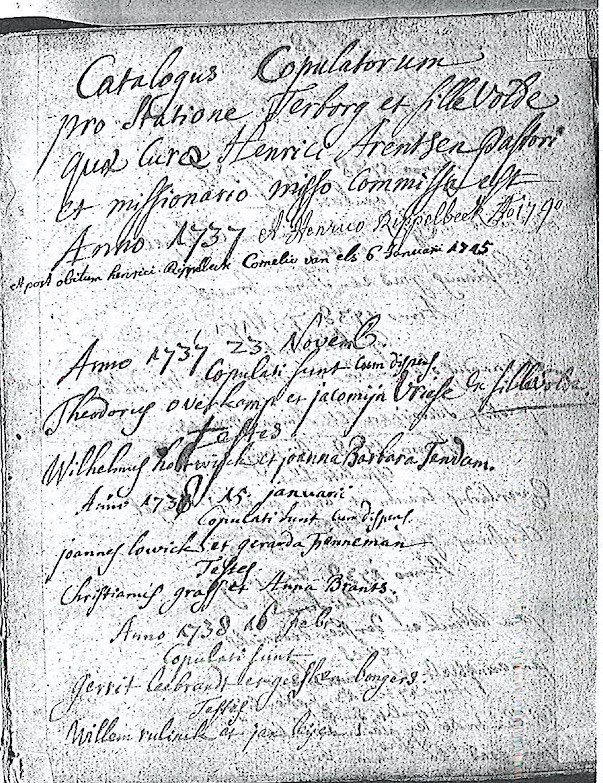 Catalogus Copulatorum
pro Statione Terborg et sillevolde
quæ Curæ Henrici Arentsen Pastori
et missionario nisso Commissa est
Anno 1737 et Henrico Rippelbeck Ao
et post obitum henrici Rippelbeck Cornelio van els 6 Januari 1745
Anno 1737 23 Novemb.
Copulati sunt cum dispens.
Theodorus overkamp et jacomijn Vriese in sillevolde
Testes
Wilhelmus et joanna Barbara Tandam.
Anno 1738. 15. januarii
Copulati sunt cum dispens.
joannes lowick et gerarda penneman
Testes
Christianus grass et Anna Brants.
Anno 1738 16 Febr.
Copulati sunt
gerrit leebrandt et geesken bongers.
Testes
Willem rulinck et jan